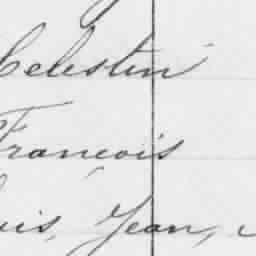 Celestin
François
uis, Jean,